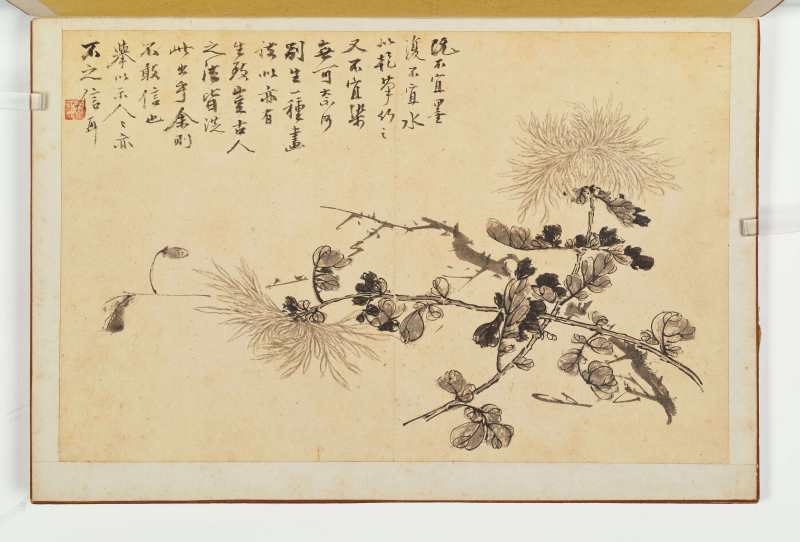 不宜墨
復不宜水
以乾筆之
又不宜染
無可奈何
別生一種畫
法似亦有
生致豈古人
之法皆
此出乎余則
不敢信也
舉以示人人亦
不之信耶